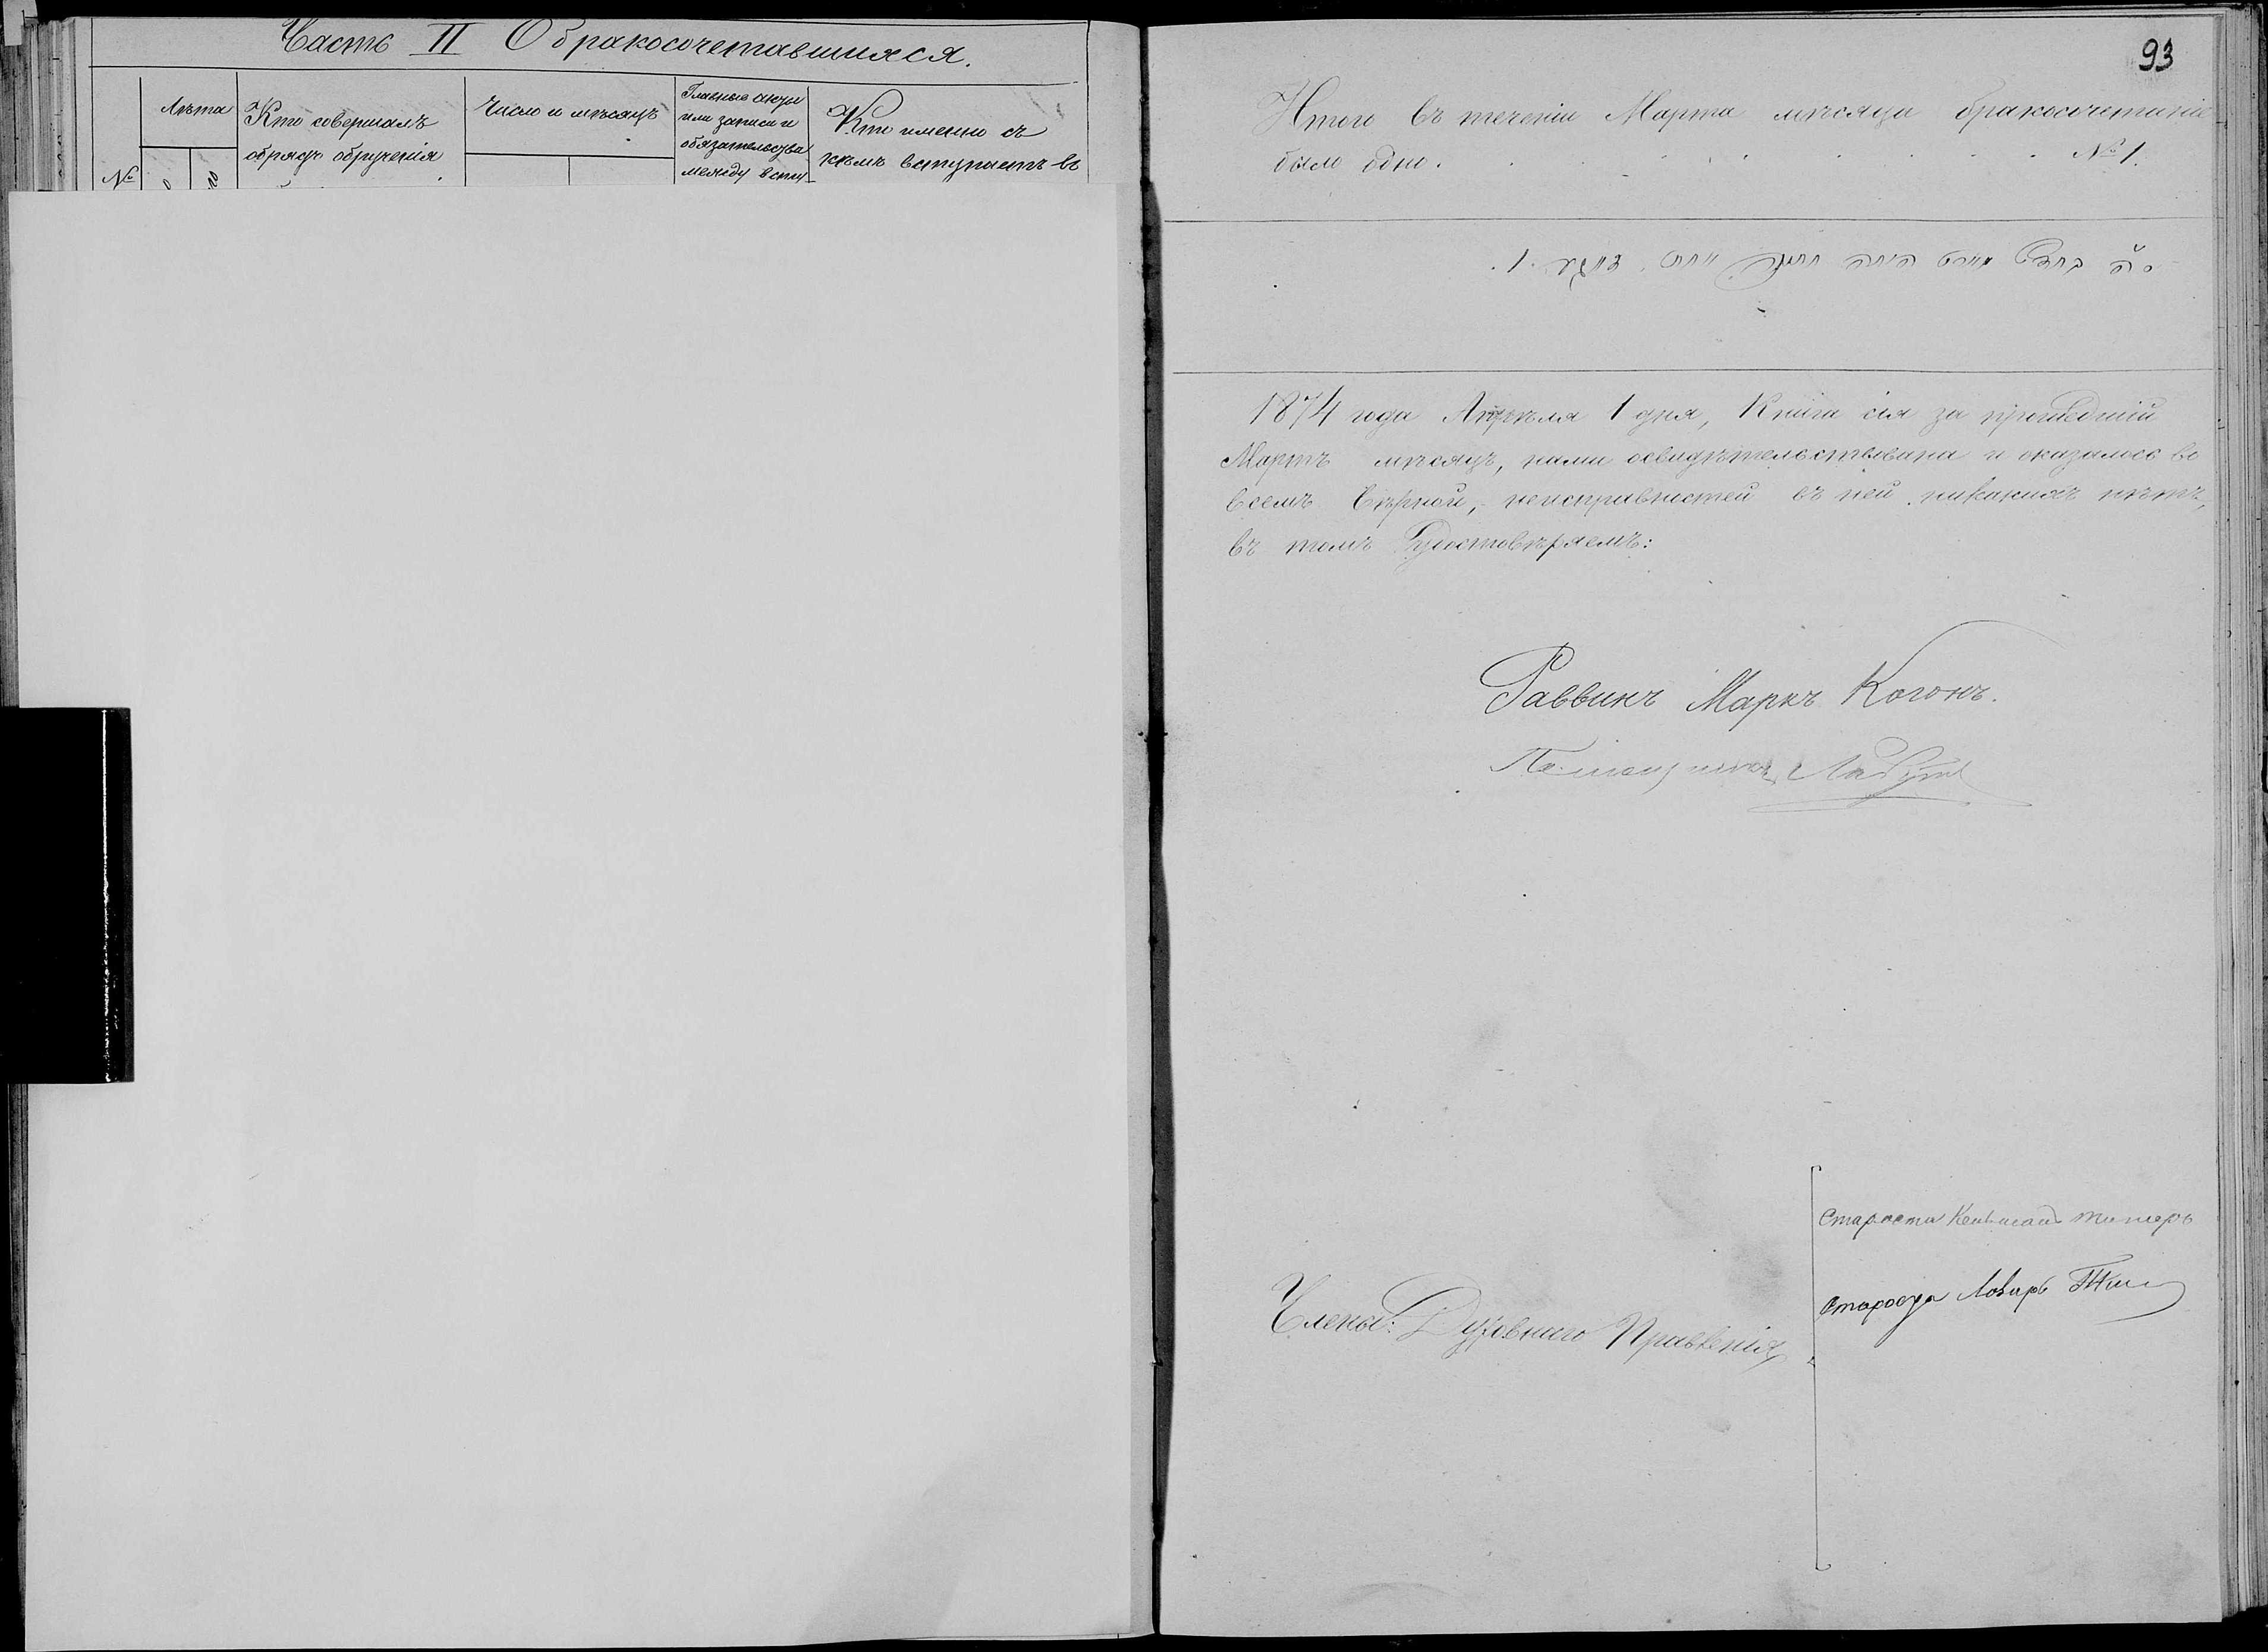 Часть II О бракосочетавшихся.
№
Лѣта
Кто совершалъ
обрядъ обрученія
Число и мѣсяцъ
Главные акты
или записи и
обязательства
между всту-
Кто именно съ
кѣмъ вступаетъ въ
93
Итого въ теченіи Марта мѣсяца бракосочетаніе
было одно. . . . . . . . № 1.
1.
1874 года Апрѣля 1 дня, Книга сія за прошедшій
Мартъ мѣсяцъ, нами освидѣтельствована и оказалось во
всемъ вѣрной, неисправностей въ ней никакихъ нѣтъ,
въ томъ удостовѣряемъ:
Раввинъ Маркъ Когонъ.
Члены: Духовнаго Правленія
Староста
Староста